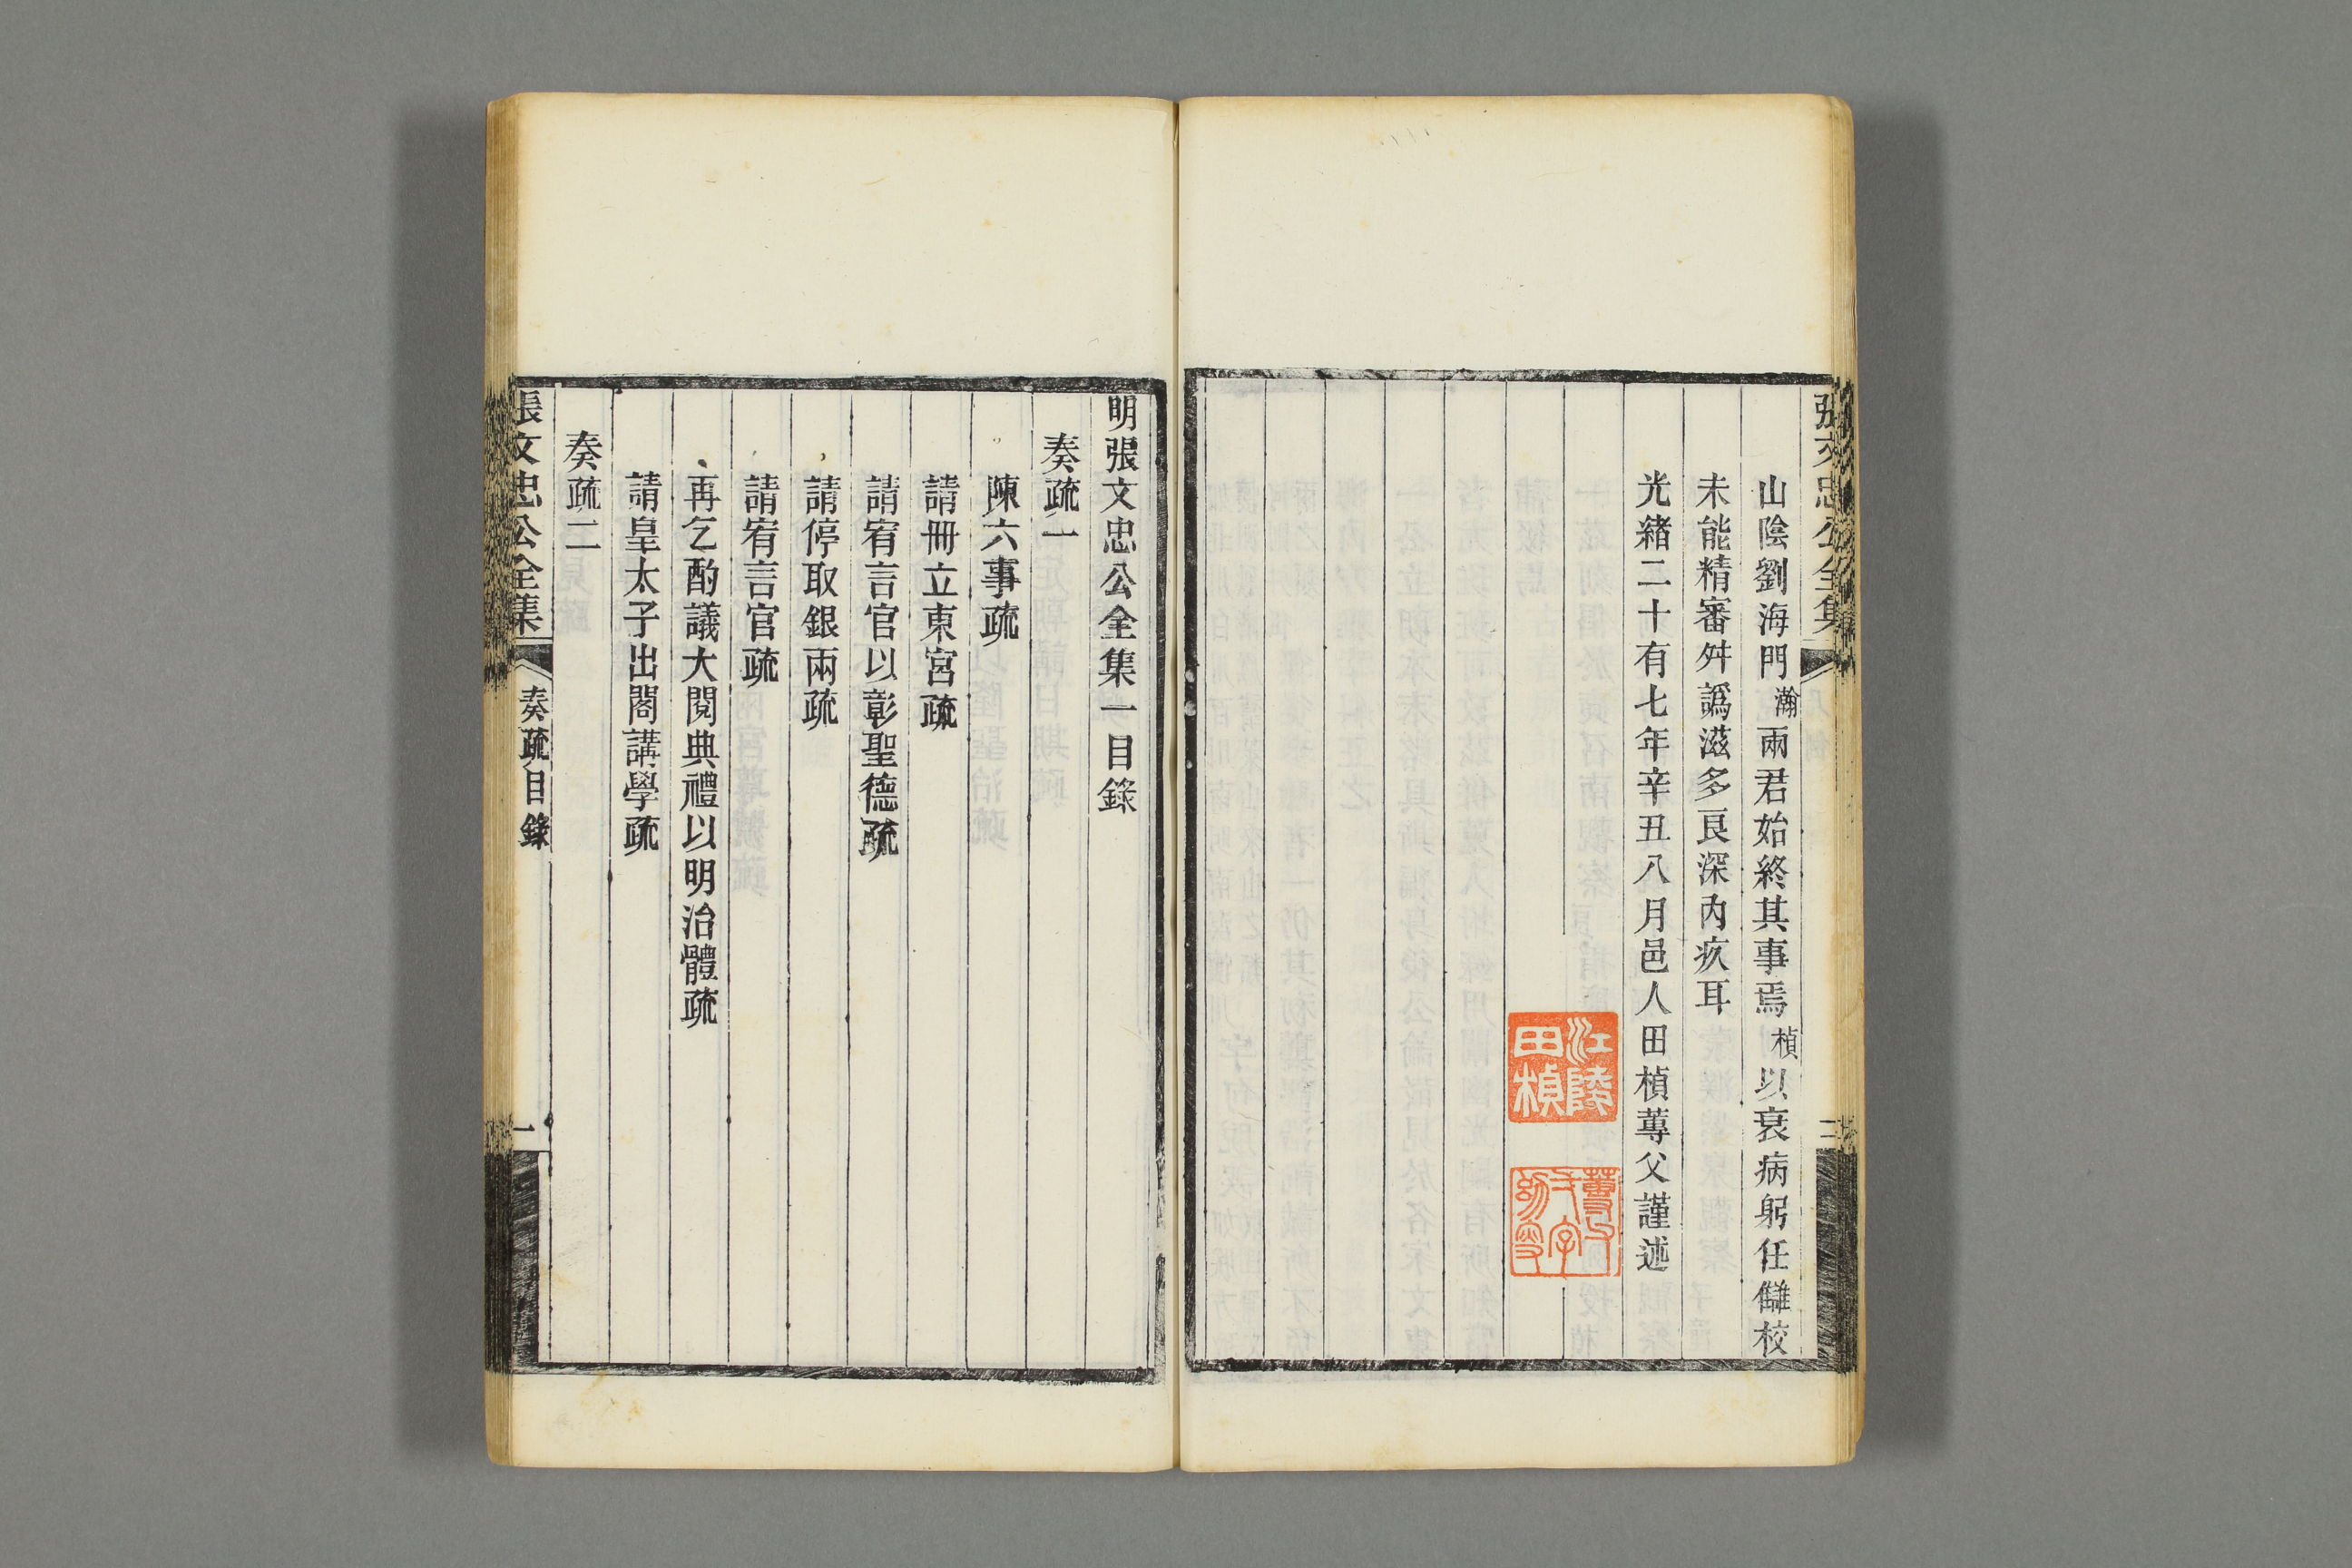 張文忠公全集
二
山陰劉海門瀚兩君始終其事焉楨以衰病躬任讎校
未能精審舛譌滋多良深內疚耳
光緒二十有七年辛丑八月邑人田楨蓴父謹述
江陵田楨
明張文忠公全集一目錄
奏疏一
陳六事疏
請冊立東宮疏
請宥言官以彰聖德疏
請停取銀兩疏
請宥言官疏
再乞酌議大閱典禮以明治體疏
請皇太子出閣講學疏
奏疏二
張文忠公全集
奏疏目錄
一